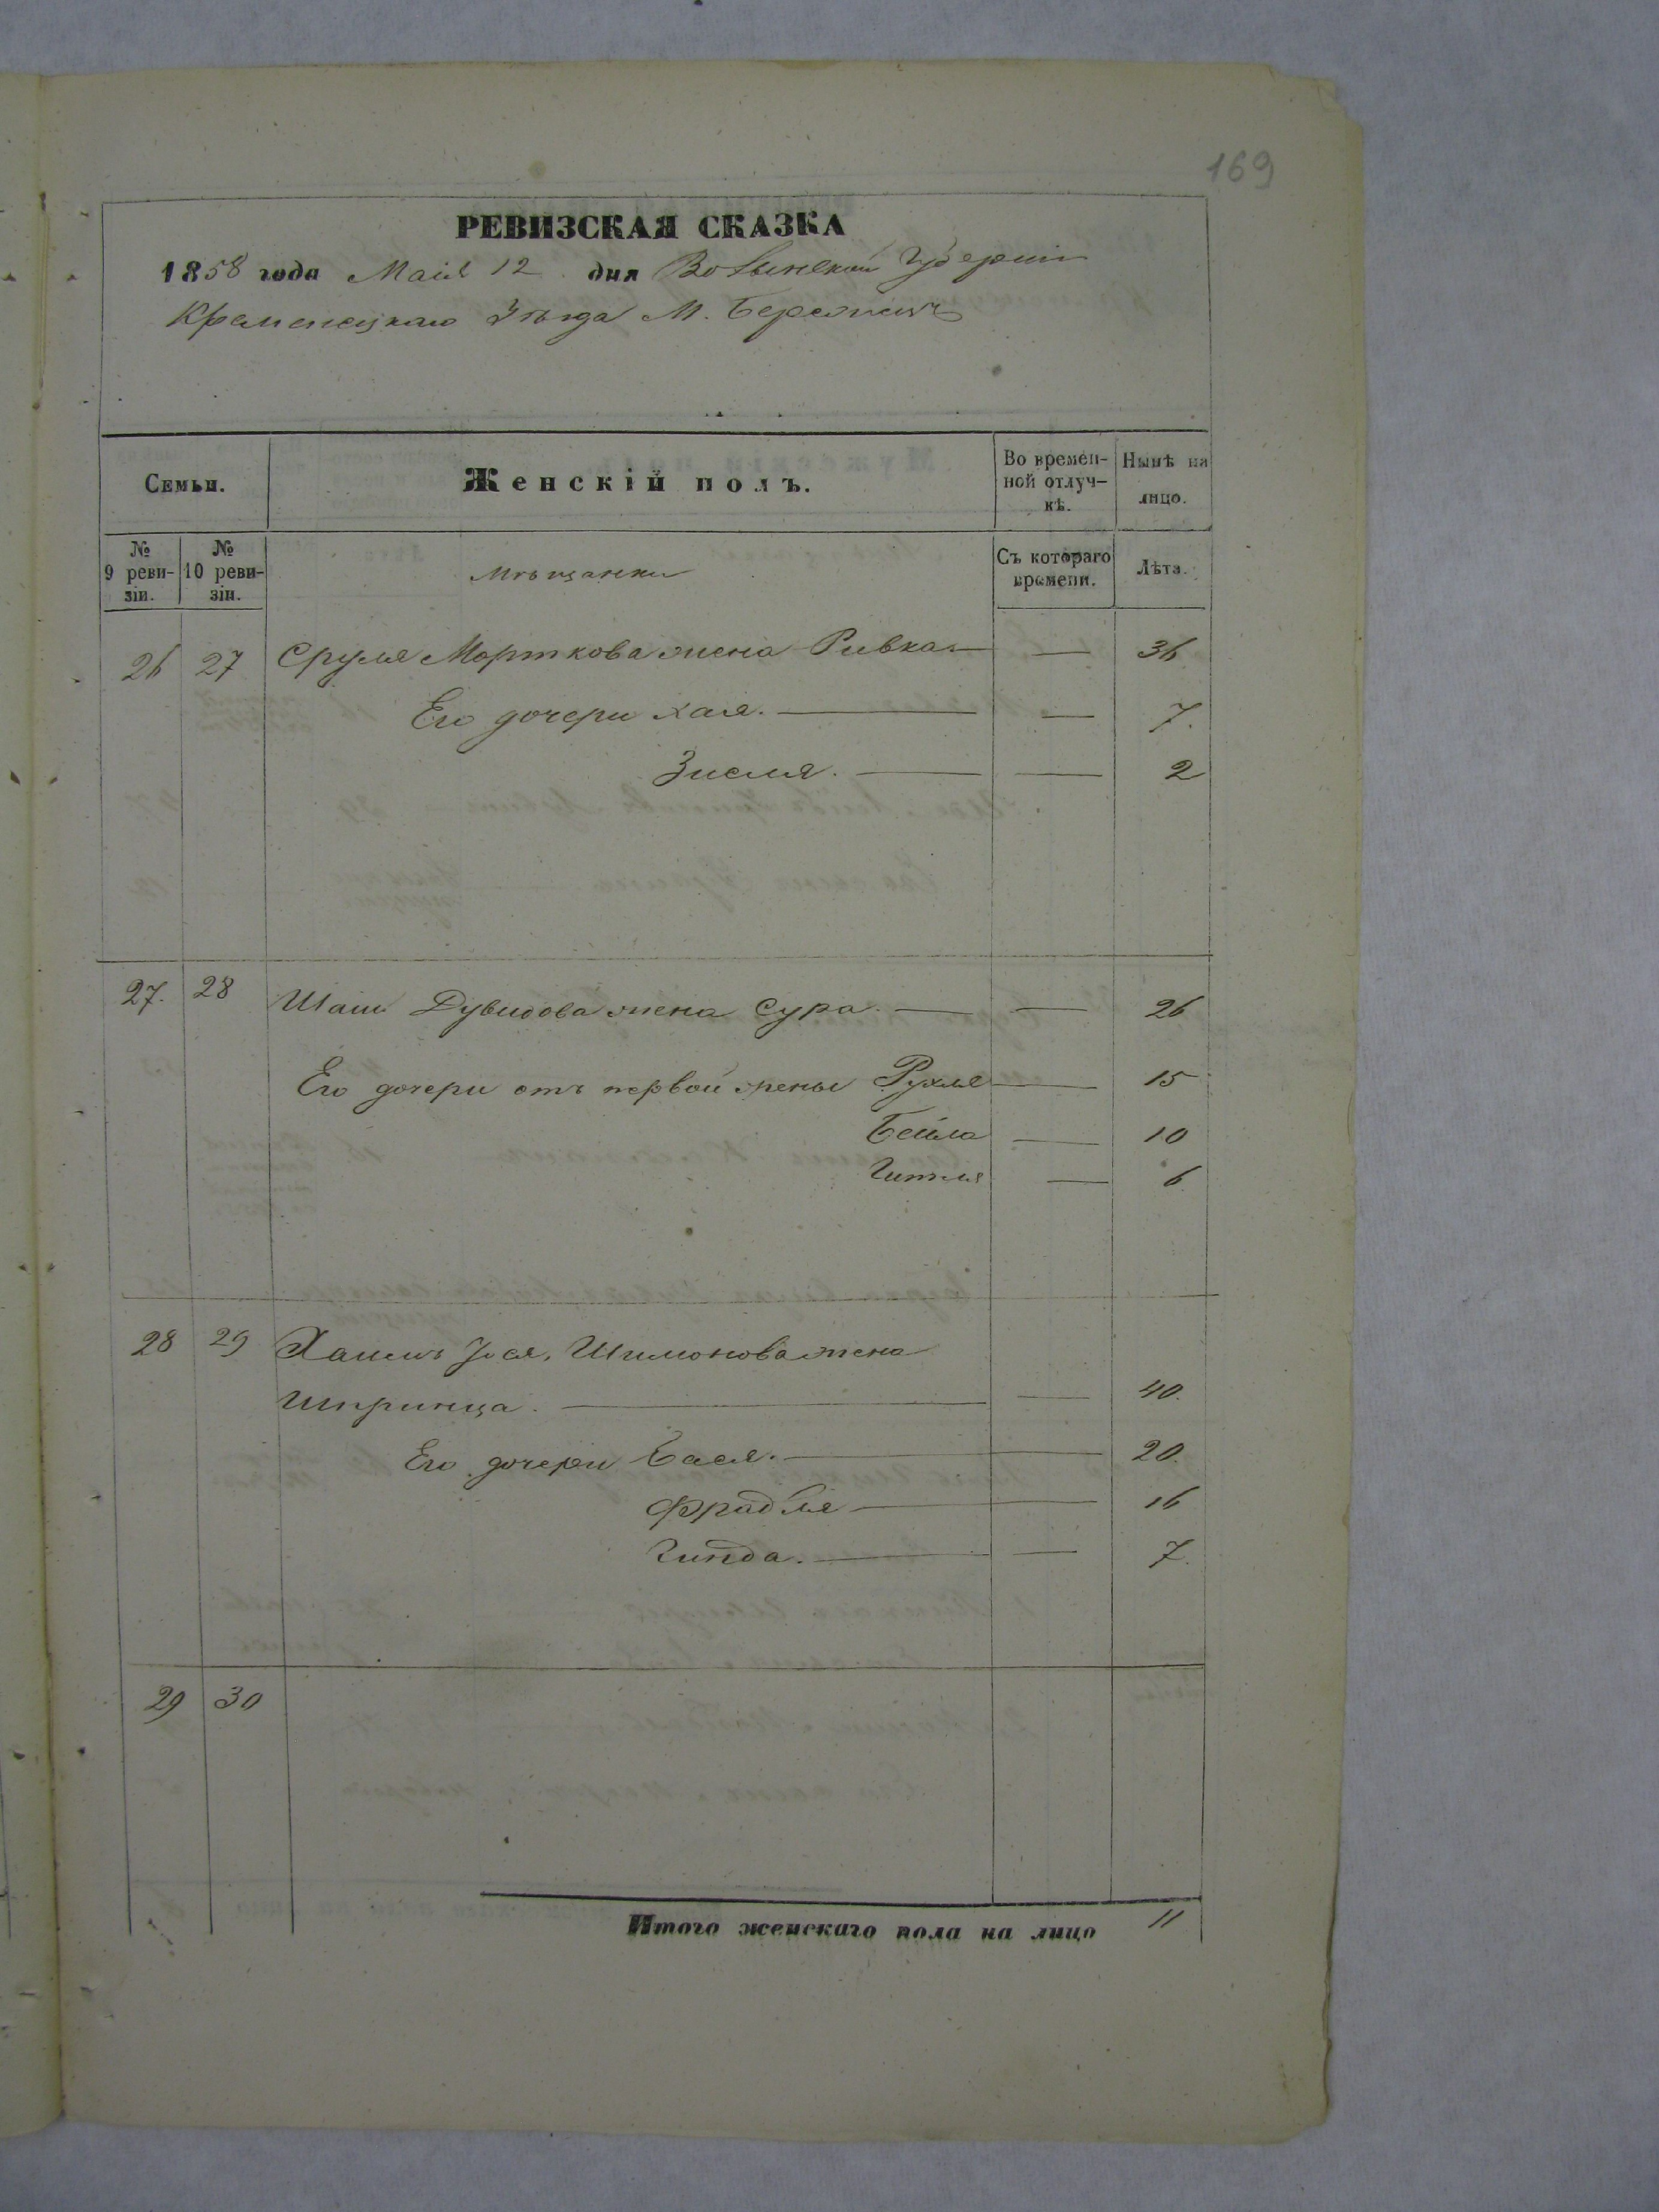 169
РЕВИЗСКАЯ СКАЗКА
1858 года Маія 12 дня Волынской Губерніи
Кременецкаго Уѣзда М. Бережецъ
Семьи.
Женскій полъ.
Во времен-
ной отлуч-
кѣ.
Нынѣ на
лицо.
№
9 реви-
зіи.
№
10 реви-
зіи.
Мѣщанки
Съ котораго
времени.
Лѣта.
26 27 Сруля Морткова жена Ривка — — 36
Его дочери Хая. — — 7.
Зисля. — — 2
27. 28 Шаи Дувидова жена Сура. — — 26
Его дочери отъ первой жены Рухля — 15
Бейла — 10
Гитля — 6
28 29 Хаимъ Iося, Шимонова жена
Шпринца. — — 40.
Его дочери Бася. — 20.
Фрадля — 16
Гинда. — — 7.
29 30
Итого женскаго пола на лицо 11